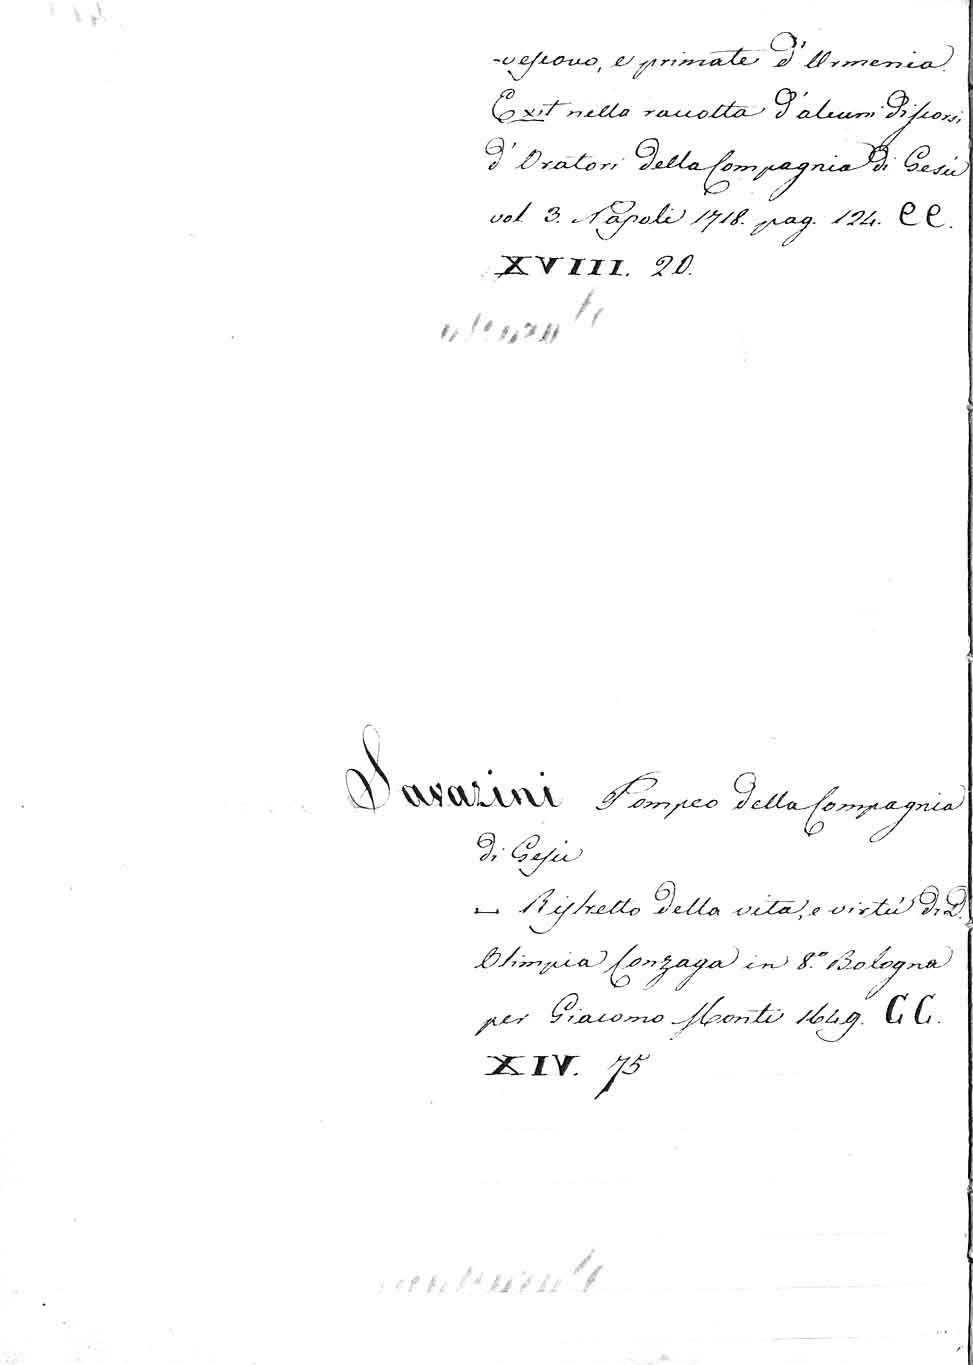 -vescovo, e primate d'Armenia.
Exit nella raccolta d'alcuni discorsi
d'Oratori della Compagnia di Gesù
vol 3. Napoli 1718. pag. 124. CC.
XVIII. 20.
Savazini Pompeo della Compagnia
di Gesù
— Ristretto della vita, e virtù di D.
Olimpia Gonzaga in 8.º Bologna
per Giacomo Monti 1649. CC.
XIV. 75